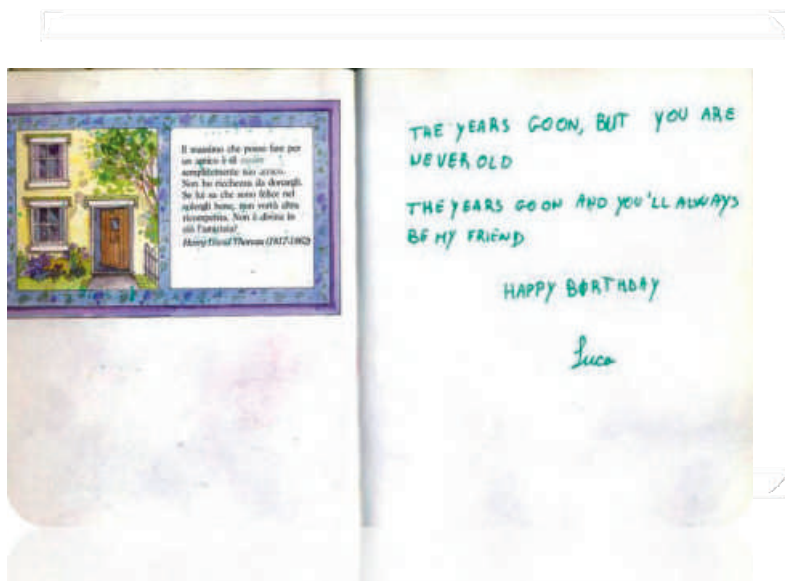 Il massimo che posso fare per
un amico è di
semplicemente suo amico.
Non ho ricchezza da donargli.
Se lui sa che sono felice nel
volergli bene, non vorrà altra
ricompensa. Non è divina in
ciò l'amicizia?
Henry David Thoreau (1817-1862)
THE YEARS GO ON, BUT YOU ARE
NEVER OLD
THE YEARS GO ON AND YOU'LL ALWAYS
BE MY FRIEND
HAPPY BORTHDAY
Luca